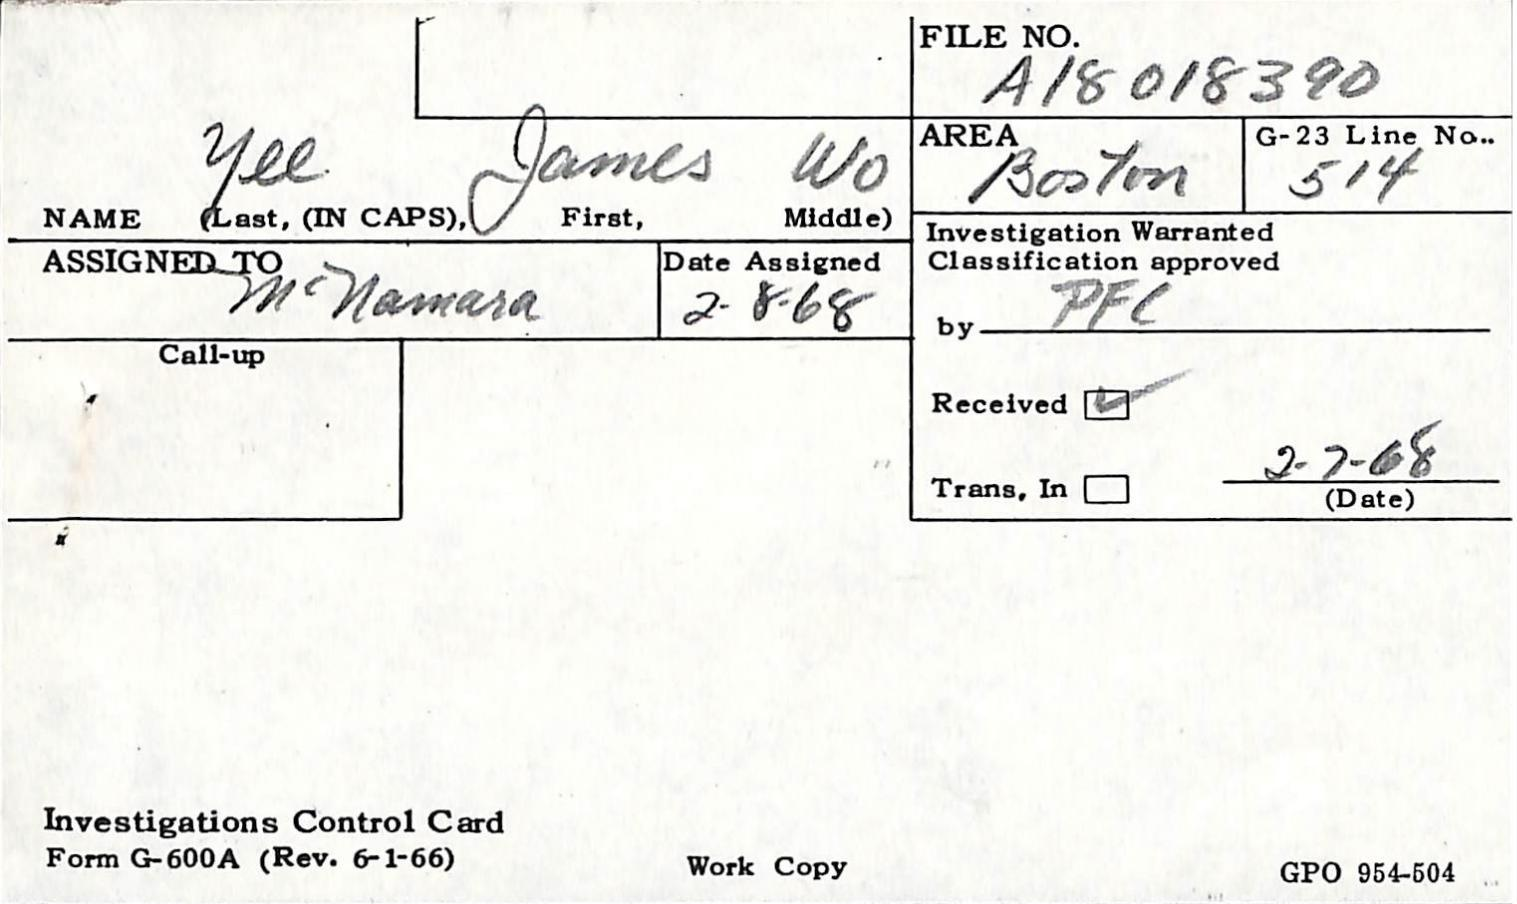 FILE NO.
A18 018 390
Yee James Wo
NAME (Last, (IN CAPS), First, Middle)
AREA
Boston
G-23 Line No..
514
ASSIGNED TO
McNamara
Date Assigned
2-8-68
Investigation Warranted
Classification approved
by PFC
Call-up
Received
2-7-68
Trans, In
(Date)
Investigations Control Card
Form G-600A (Rev. 6-1-66)
Work Copy
GPO 954-504